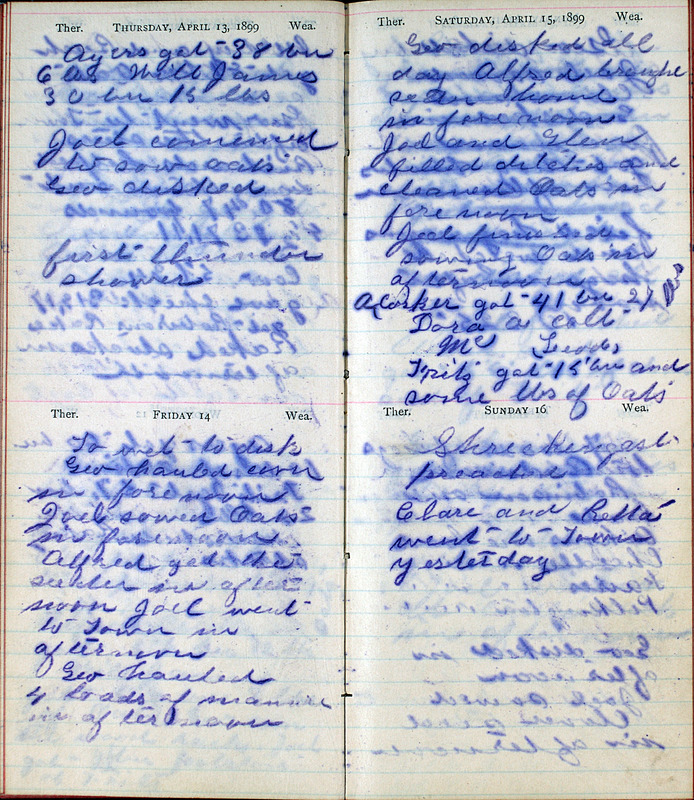 Ther. THURSDAY, APRIL 13, 1899 Wea.
Ayers got 38 bu
6 Will James
30 bu 15 lbs
Joel comenced
to sow oats
Geo disked
first thunder
shower
Ther. FRIDAY 14 Wea.
To wet to disk
Geo hauled corn
in fore noon
Joel sowed Oats
in fore noon
Alfred got the
seeder in after
noon Joel went
to Town in
afternoon
Geo hauled
4 loads of manure
in after noon
Ther. SATURDAY, APRIL 15, 1899 Wea.
Geo disked all
day Alfred brought
home
in fore noon
Joel and Glen
filled ditches and
cleaned Oats in
fore noon
Joel finished
sowing Oats in
afternoon
A Corker got 41 bu 27
Dora a colt
Mc
Fritz got 15 bu and
some lbs of Oats
Ther. SUNDAY 16 Wea.
Shreckengast
preached
Clare and Retta
went to Town
yesterday